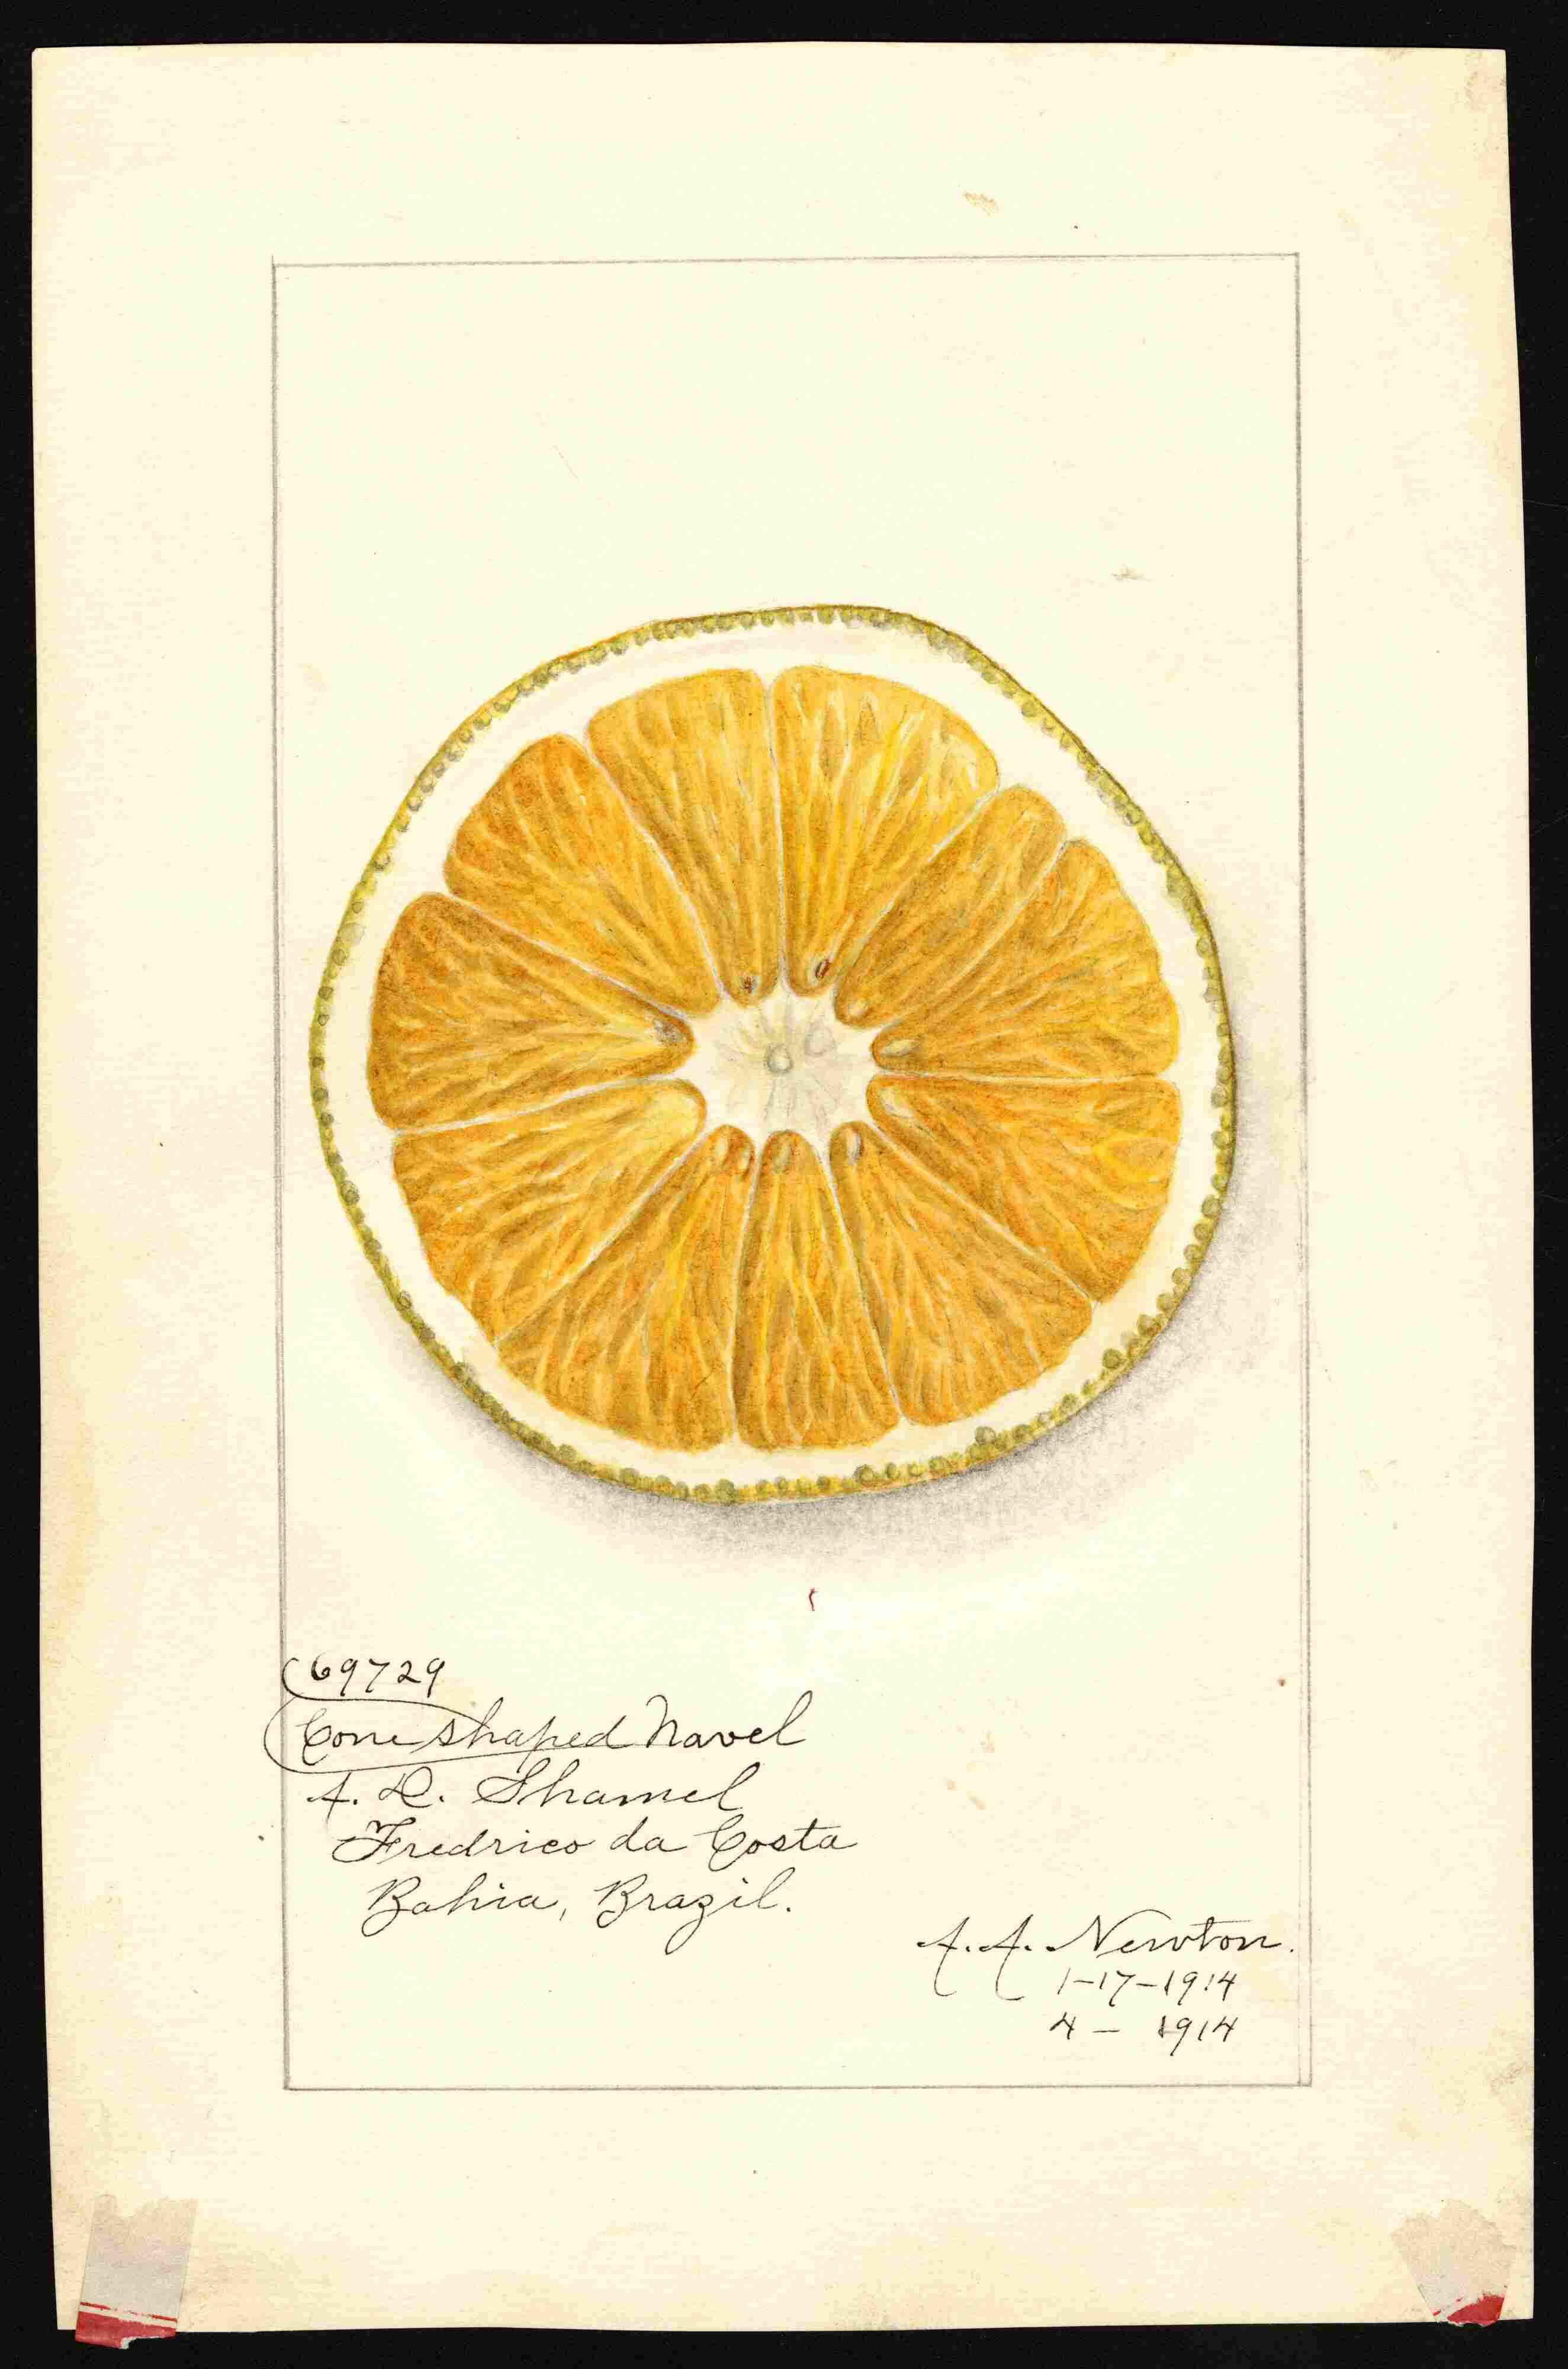 69729
Cone shaped Navel
A. D. Shamel
Fredrico da Costa
Bahia, Brazil.
A. A. Newton.
1-17-1914
4 - 1914